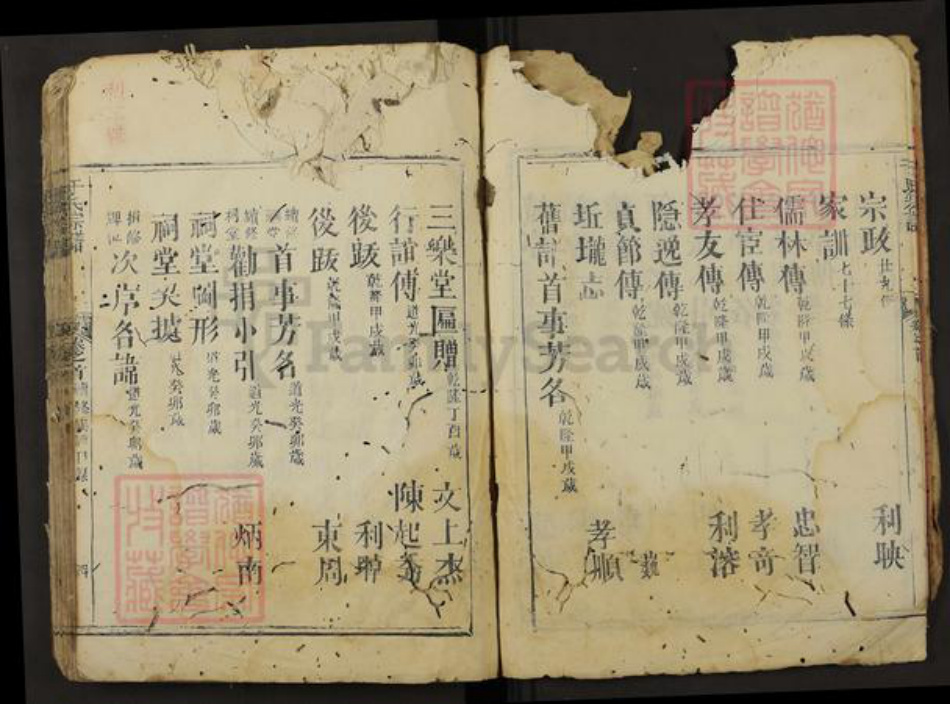 宗政 廿九條 利映
家訓 七十七條
儒林傳 乾隆甲戌歲 忠智
仕宦傳 乾隆甲戌歲 孝奇
孝友傳 乾隆甲戌歲 利溶
隐逸傳 乾隆甲戌歲
貞節傳 乾隆甲戌歲
坵壠志 孝順
舊討首事芳名 乾隆甲戌歲
三樂堂匾贈 乾隆丁酉歲 文上杰
行誼傳 道光癸卯歲 陳起
後跋 乾隆甲戌歲 利聘
後跋 乾隆甲戌歲 東周
首事芳名 道光癸卯歲
續修祠堂勸捐小引 道光癸卯歲 炳南
祠堂圖形 道光癸卯歲
祠堂 道光癸卯歲
捐修 次序各諱 道光癸卯歲
氏宗譜
FamilySearch